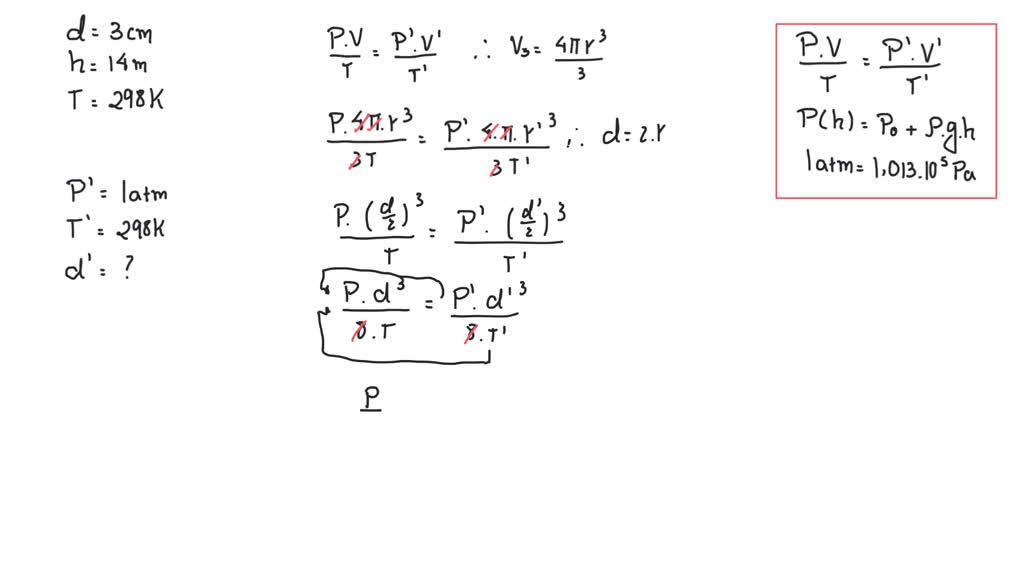 d = 3cm
h = 14m
T = 298K
P' = 1atm
T' = 298K
d' = ?
P.V/T = P'.V'/T' ∴ V₃ = 4πr³/3
P.4π.r³/3T = P'.4.π.r'³/3T' ∴ d = 2.r
P.(d/2)³/T = P'.(d'/2)³/T'
P.d³/8.T = P'.d'³/8.T'
P
P.V/T = P'.V'/T'
P(h) = P₀ + ρ.g.h
1atm = 1,013.10⁵ Pa